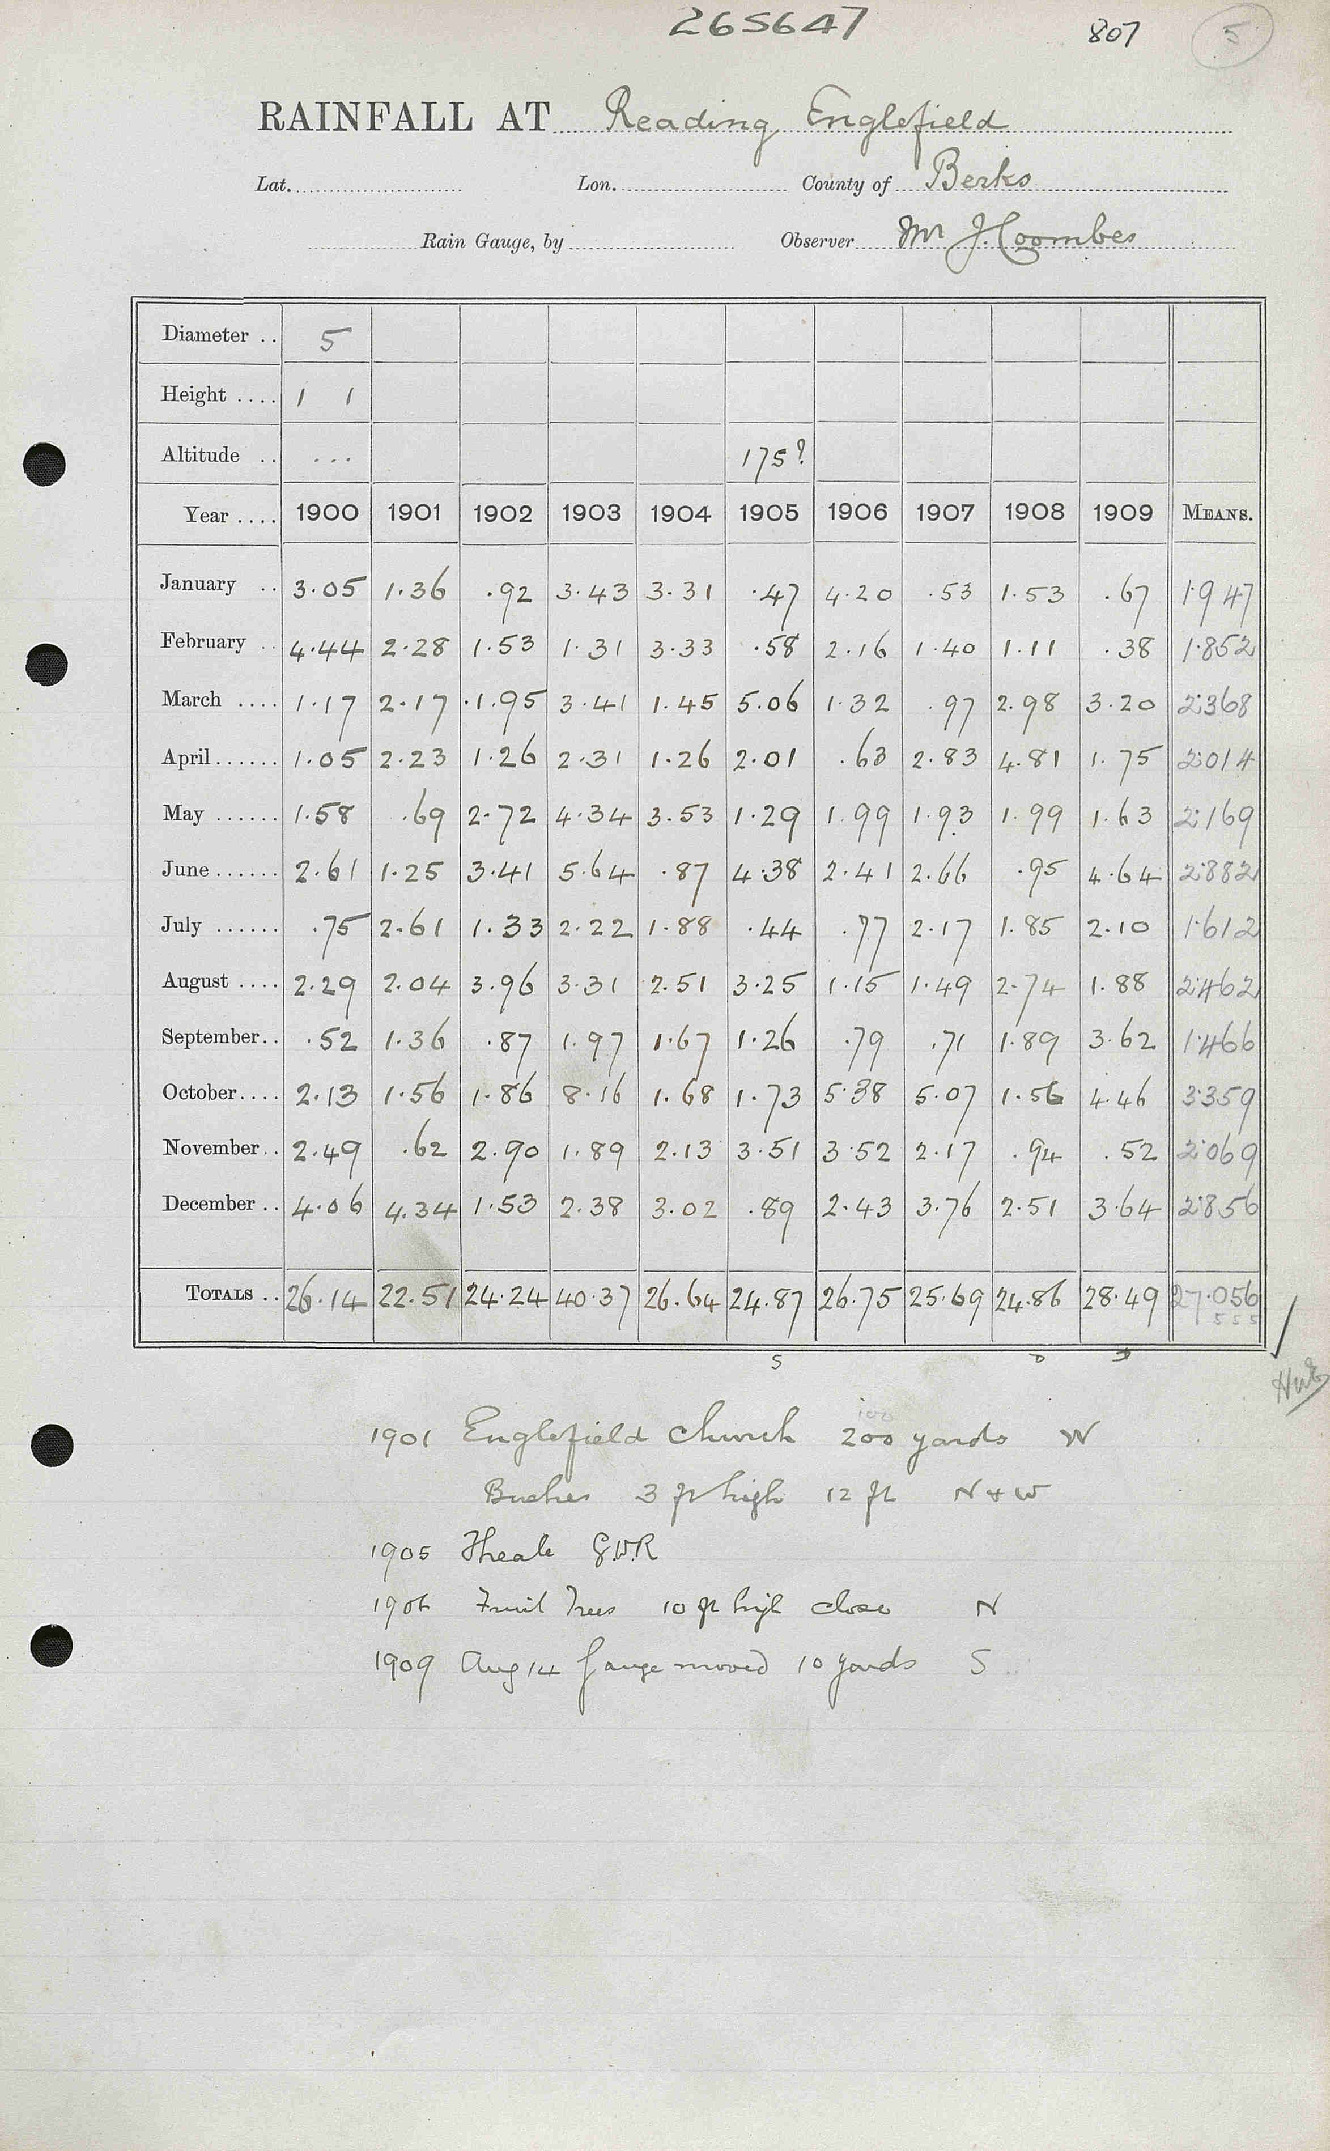 265647 807 5
RAINFALL AT Reading Englefield
Lat. Lon. County of Berks
Rain Gauge, by Observer Mr J. Coombes
Diameter .. 5
Height .... 1 1
Altitude .. ... 175?
Year .... 1900 1901 1902 1903 1904 1905 1906 1907 1908 1909 MEANS.
January .. 3.05 1.36 .92 3.43 3.31 .47 4.20 .53 1.53 .67 1.947
February .. 4.44 2.28 1.53 1.31 3.33 .58 2.16 1.40 1.11 .38 1.852
March .... 1.17 2.17 1.95 3.41 1.45 5.06 1.32 .97 2.98 3.20 2.368
April...... 1.05 2.23 1.26 2.31 1.26 2.01 .63 2.83 4.81 1.75 2.014
May ...... 1.58 .69 2.72 4.34 3.53 1.29 1.99 1.93 1.99 1.63 2.169
June...... 2.61 1.25 3.41 5.64 .87 4.38 2.41 2.66 .95 4.64 2.882
July ...... .75 2.61 1.33 2.22 1.88 .44 .77 2.17 1.85 2.10 1.612
August .... 2.29 2.04 3.96 3.31 2.51 3.25 1.15 1.49 2.74 1.88 2.462
September.. .52 1.36 .87 1.97 1.67 1.26 .79 .71 1.89 3.62 1.466
October.... 2.13 1.56 1.86 8.16 1.68 1.73 5.38 5.07 1.56 4.46 3.359
November.. 2.49 .62 2.90 1.89 2.13 3.51 3.52 2.17 .94 .52 2.069
December.. 4.06 4.34 1.53 2.38 3.02 .89 2.43 3.76 2.51 3.64 2.856
TOTALS .. 26.14 22.51 24.24 40.37 26.64 24.87 26.75 25.69 24.86 28.49 27.056
555
S
1901 Englefield Church 200 yards W
100
Bushes 3 ft high 12 ft N & W
1905 Theale G.W.R
1906 Fruit Trees 10 ft high close N
1909 Aug 14 Gauge moved 10 yards S